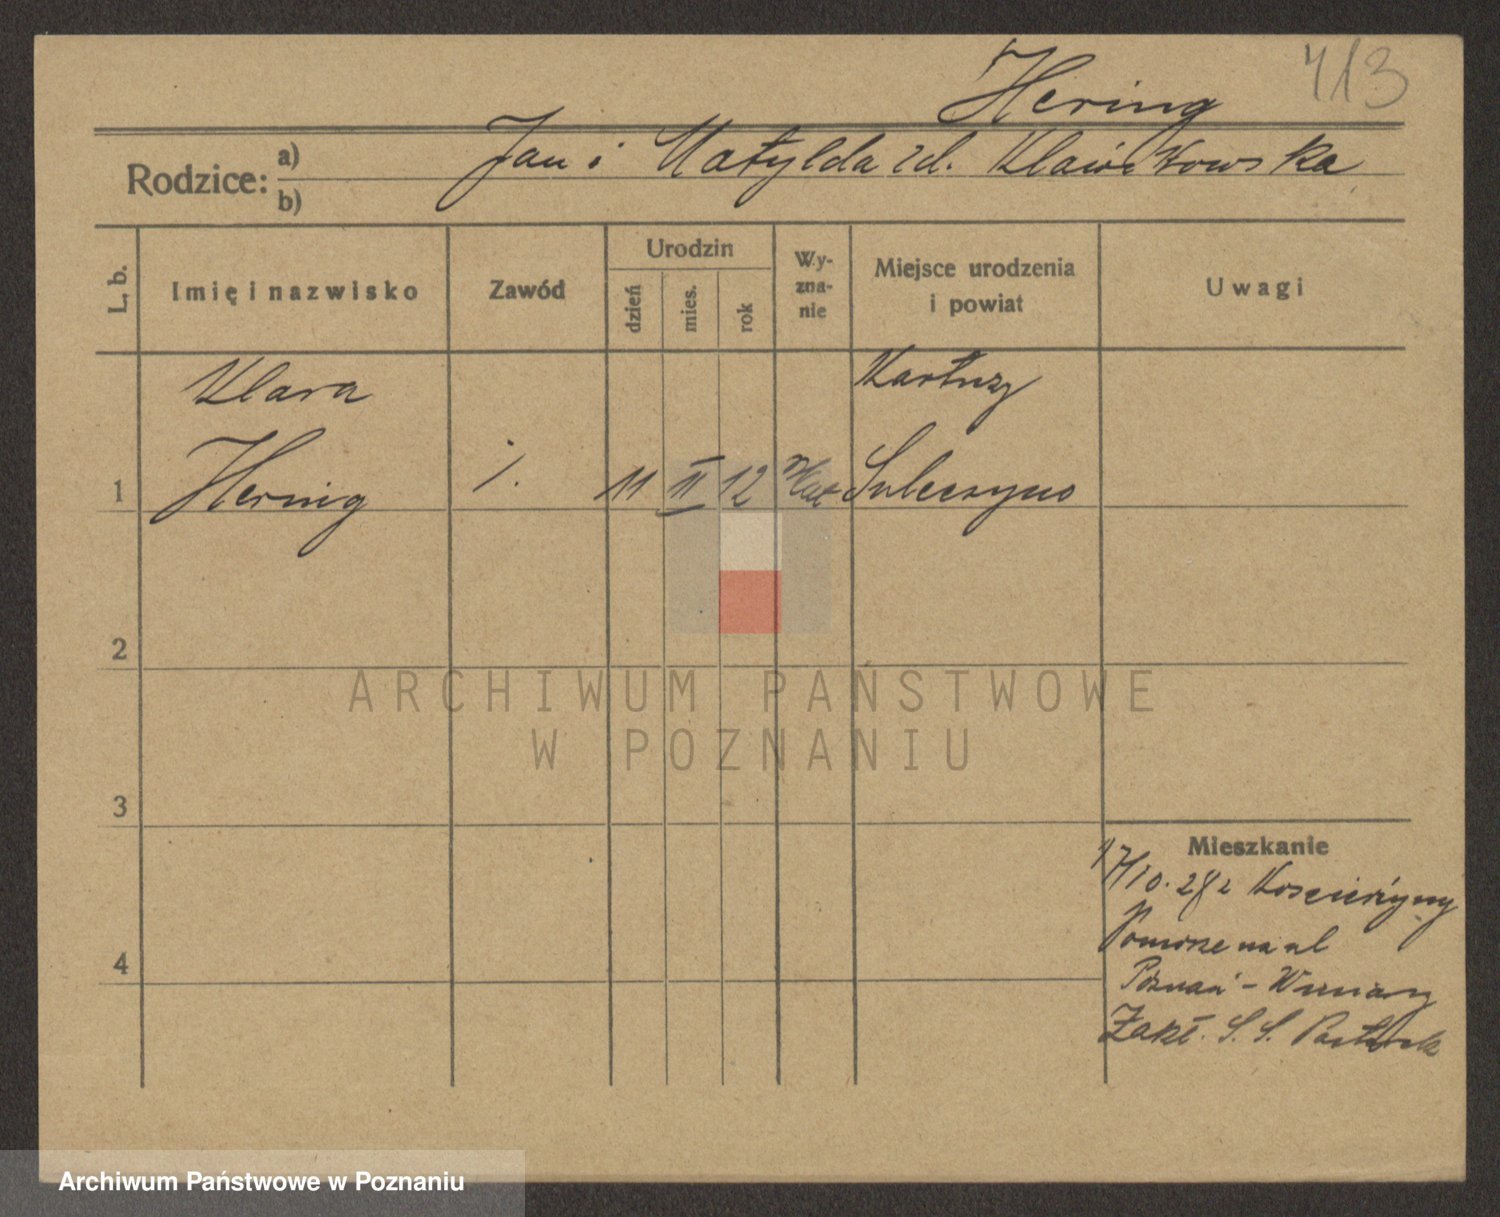 Hering 413
Rodzice: a) b)
Jan i Matylda zd.
L. b.
Imię i nazwisko
Zawód
Urodzin
dzień
mies.
rok
Wy-
zna-
nie
Miejsce urodzenia
i powiat
Uwagi
Klara
Kartuzy
1 Hering /. 11 II 12 kat Sulęczyno
2
ARCHIWUM PAŃSTWOWE
W POZNANIU
3
Mieszkanie
17/10. 28 z Kościerzyny
Pomorze na ul
4
Poznań - Winiary
Zakł. S. S. Pasterek
Archiwum Państwowe w Poznaniu